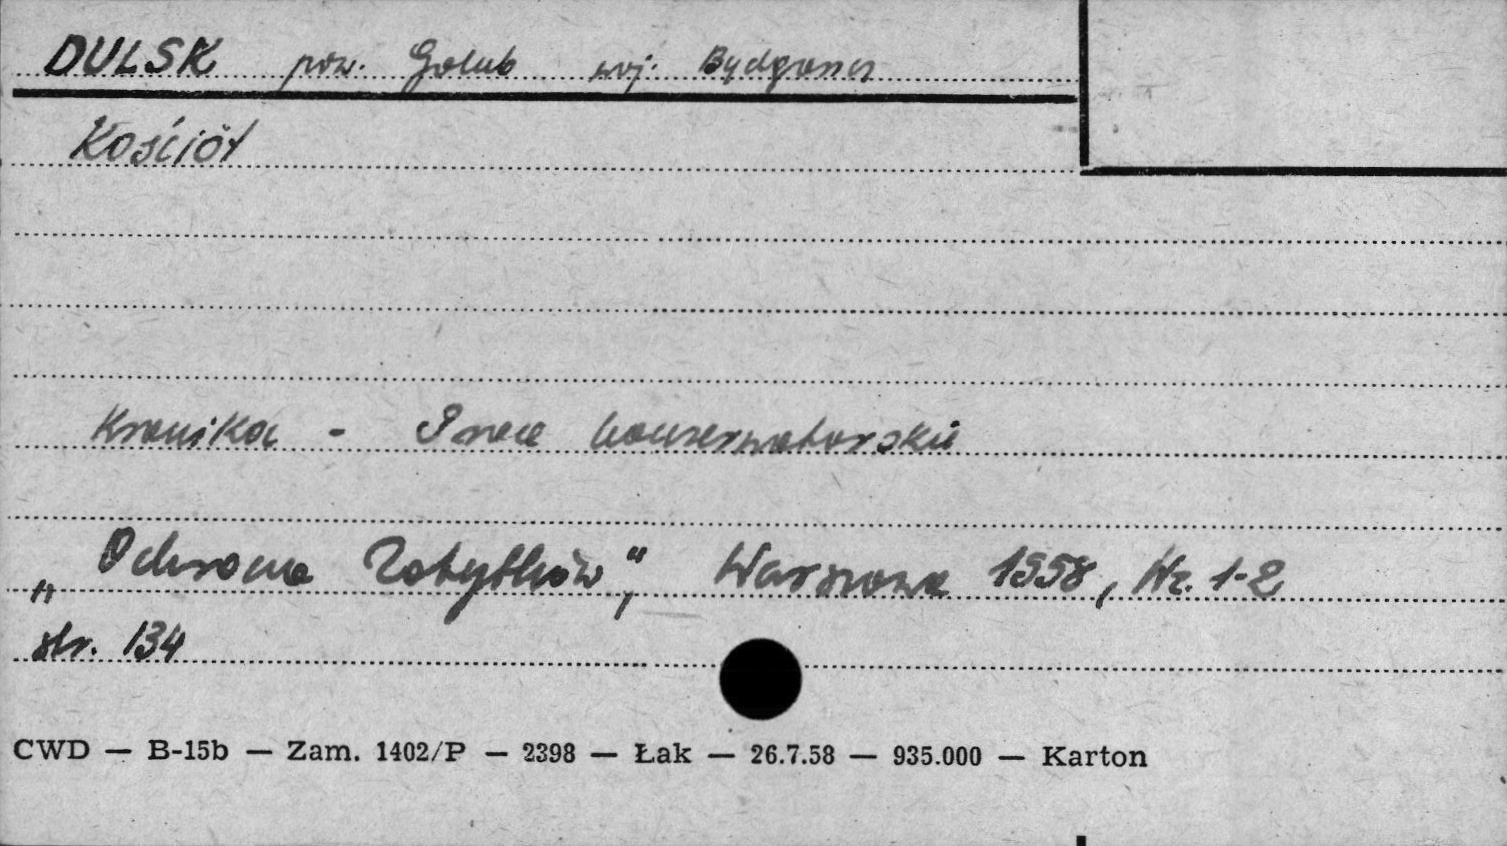 DULSK pow. Golub woj. Bydgoszcz
Kościół
Kronika - Prace konserwatorskie
„Ochrona Zabytków", Warszawa 1958, Nr. 1-2
str. 134
CWD — B-15b — Zam. 1402/P — 2398 — Łak — 26.7.58 — 935.000 — Karton